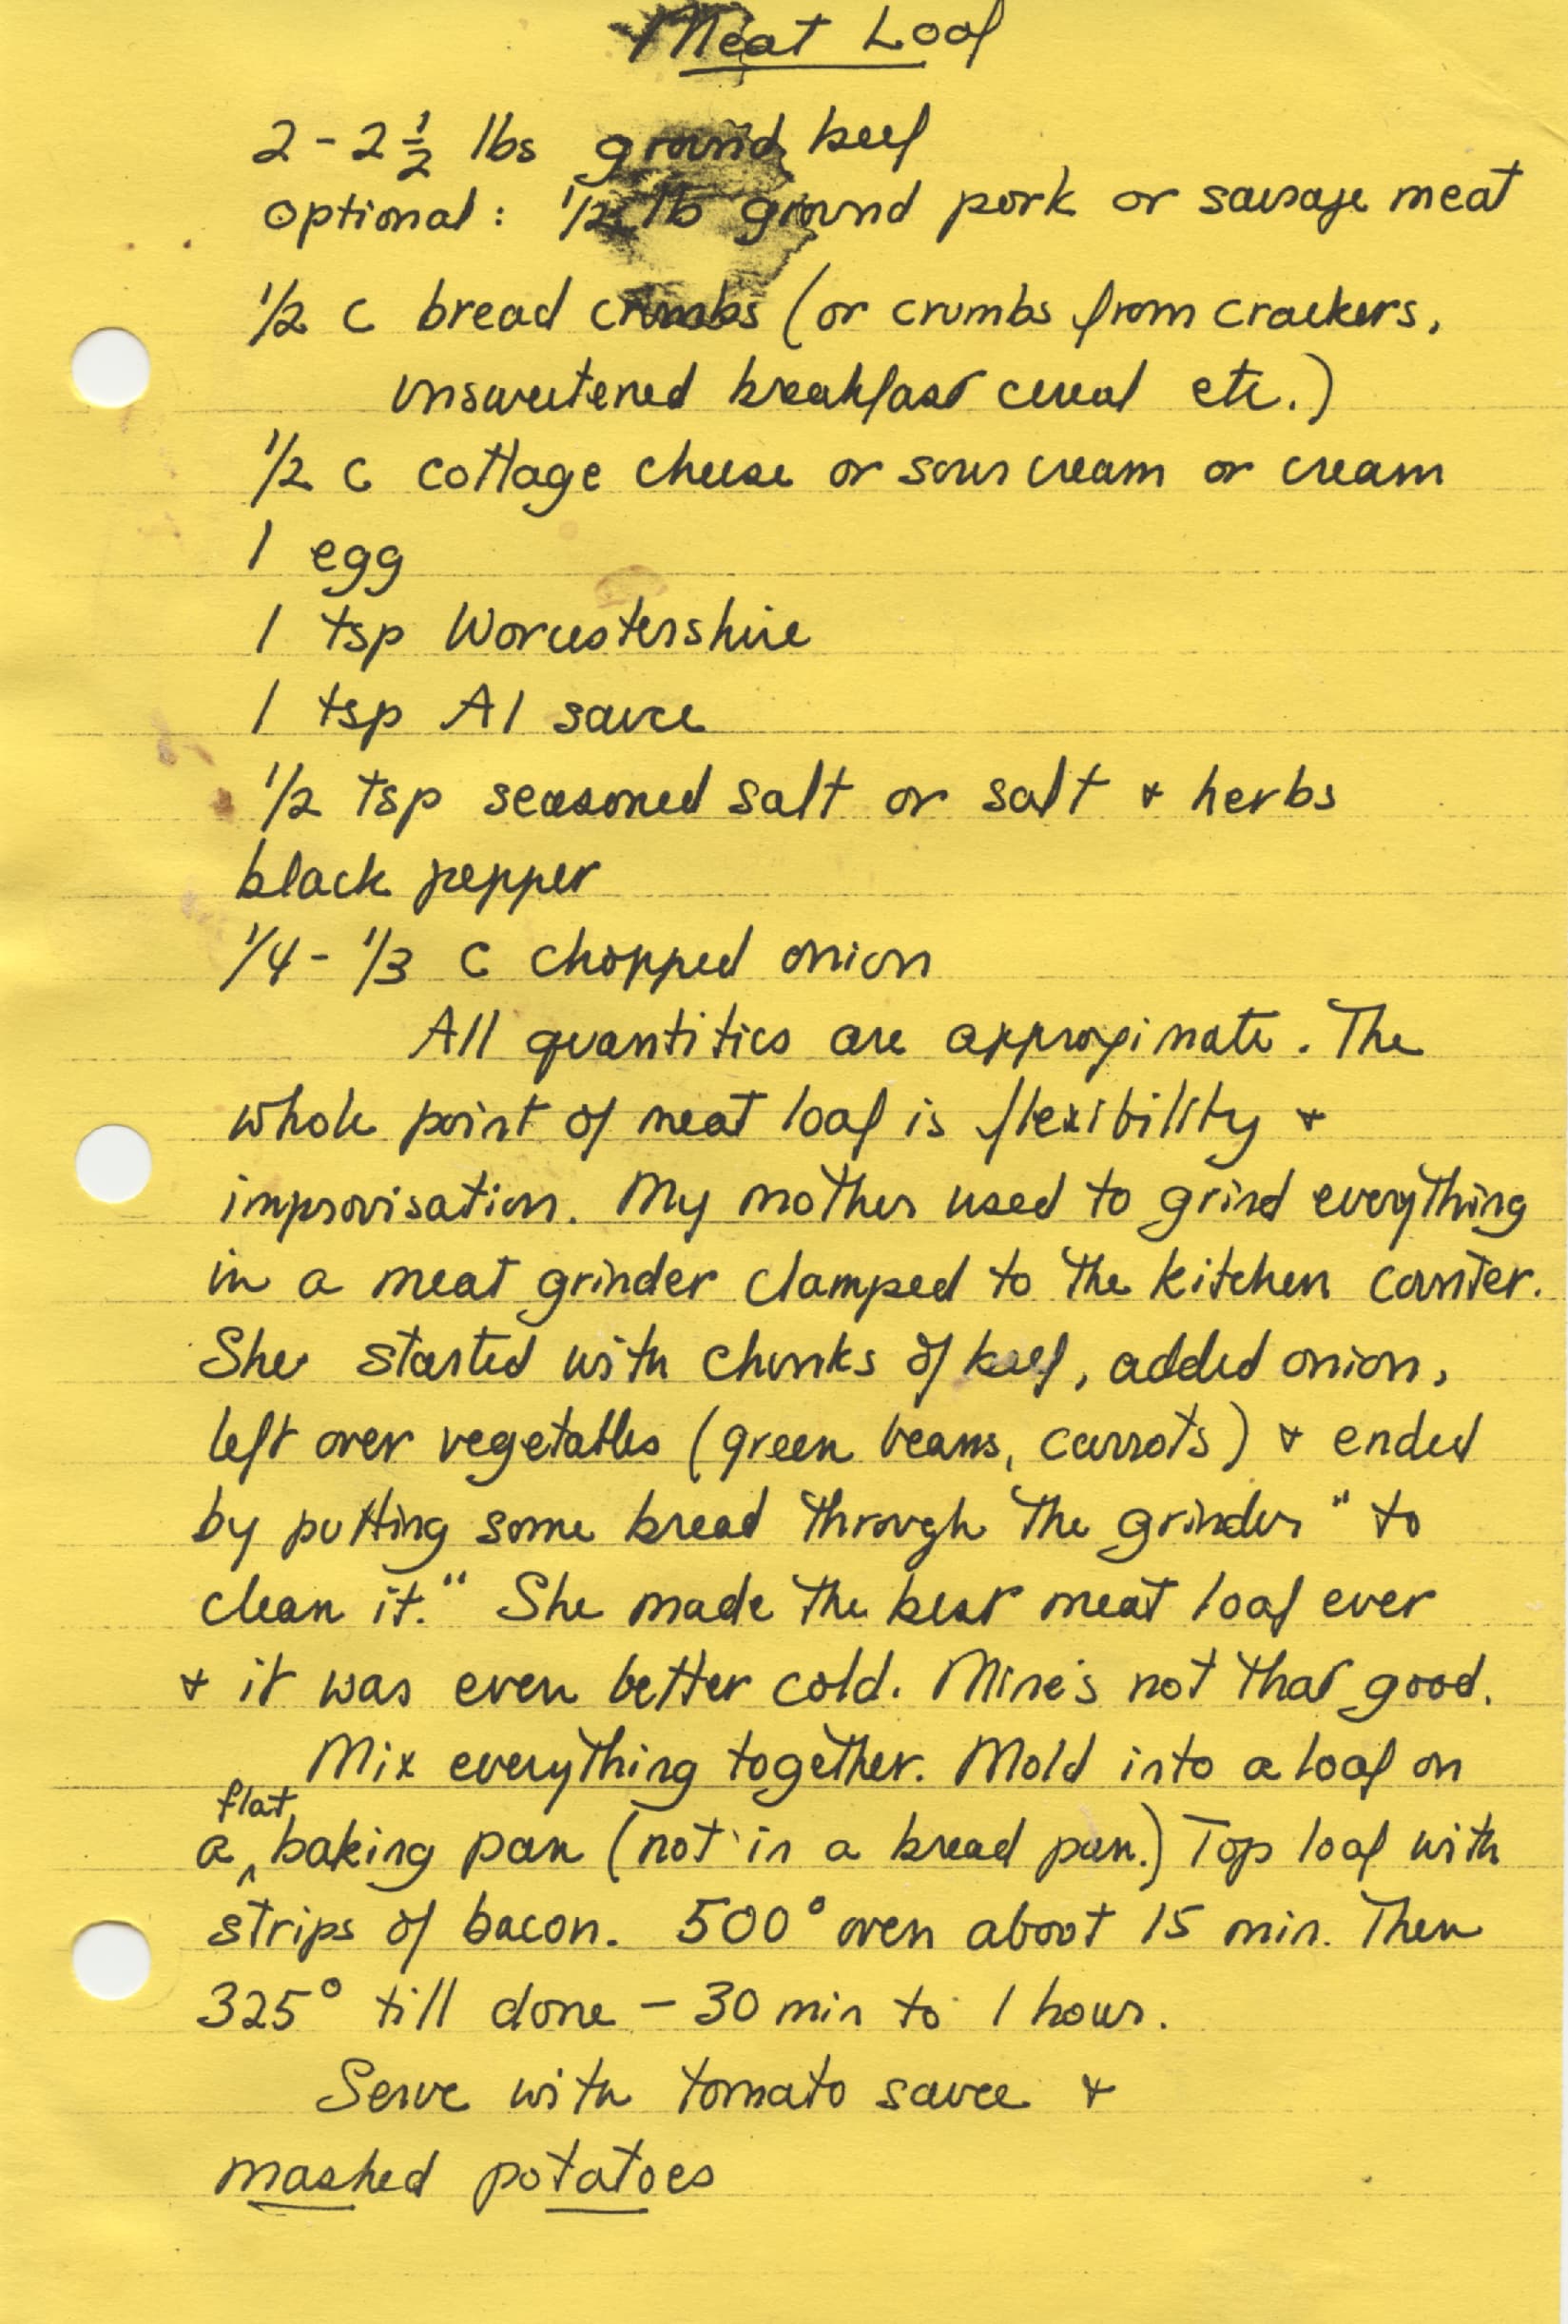 Meat Loaf
2 - 2 1/2 lbs ground beef
optional: 1/2 lb ground pork or sausage meat
1/2 c bread crumbs (or crumbs from crackers,
unsweetened breakfast cereal etc.)
1/2 c cottage cheese or sour cream or cream
1 egg
1 tsp Worcestershire
1 tsp A1 sauce
1/2 tsp seasoned salt or salt & herbs
black pepper
1/4 - 1/3 c chopped onion
All quantities are approximate. The
whole point of meat loaf is flexibility &
improvisation. My mother used to grind everything
in a meat grinder clamped to the kitchen counter.
She started with chunks of beef, added onion,
left over vegetables (green beans, carrots) & ended
by putting some bread through the grinder "to
clean it." She made the best meat loaf ever
& it was even better cold. Mine's not that good.
Mix everything together. Mold into a loaf on
a flat baking pan (not in a bread pan.) Top loaf with
strips of bacon. 500° oven about 15 min. Then
325° till done - 30 min to 1 hour.
Serve with tomato sauce &
mashed potatoes